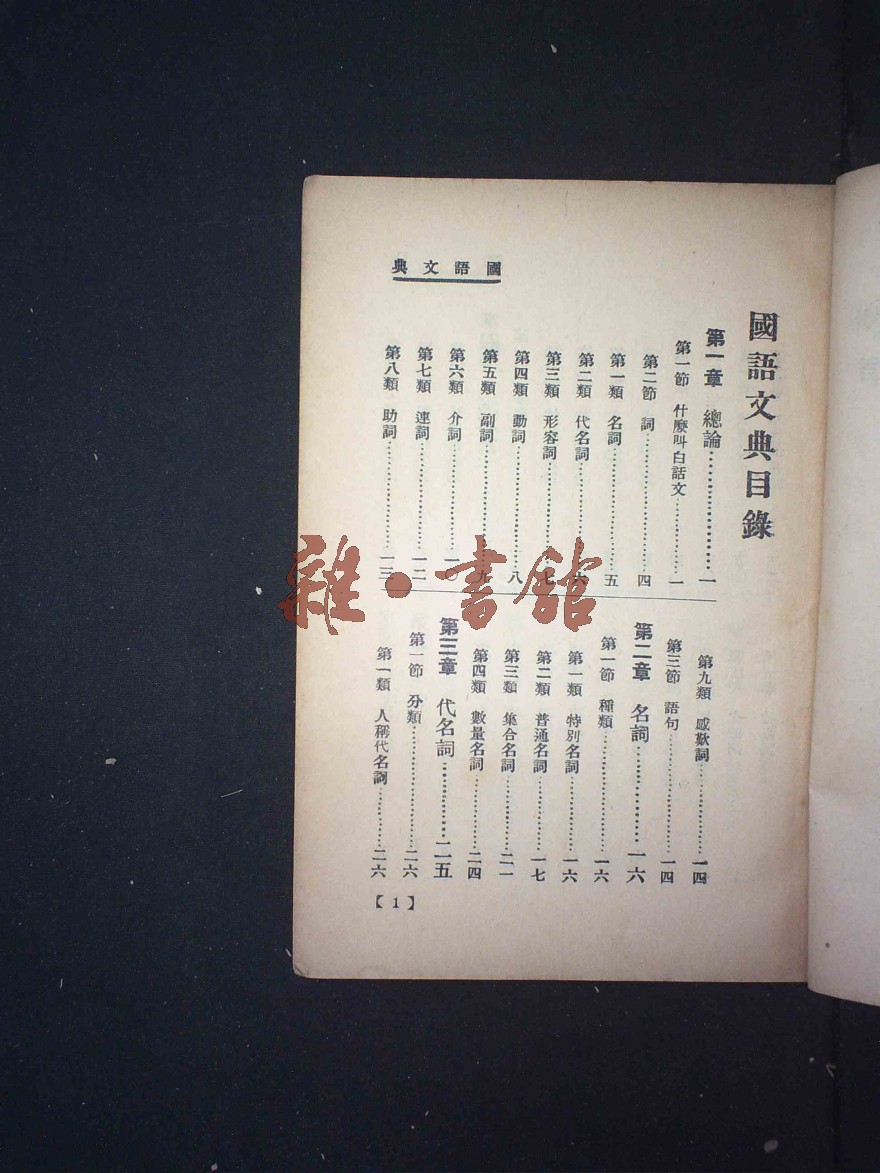 國語文典
國語文典目錄
第一章 總論………………一
第一節 什麼叫白話文………………一
第二節 詞………………四
第一類 名詞………………五
第二類 代名詞………………六
第三類 形容詞………………七
第四類 動詞………………八
第五類 副詞………………九
第六類 介詞………………一〇
第七類 連詞………………一二
第八類 助詞………………一三
第九類 感歎詞………………一四
第三節 語句………………一四
第二章 名詞………………一六
第一節 種類………………一六
第一類 特別名詞………………一六
第二類 普通名詞………………一七
第三類 集合名詞………………二一
第四類 數量名詞………………二四
第三章 代名詞………………二五
第一節 分類………………二六
第一類 人稱代名詞………………二六
【1】
雜·書館